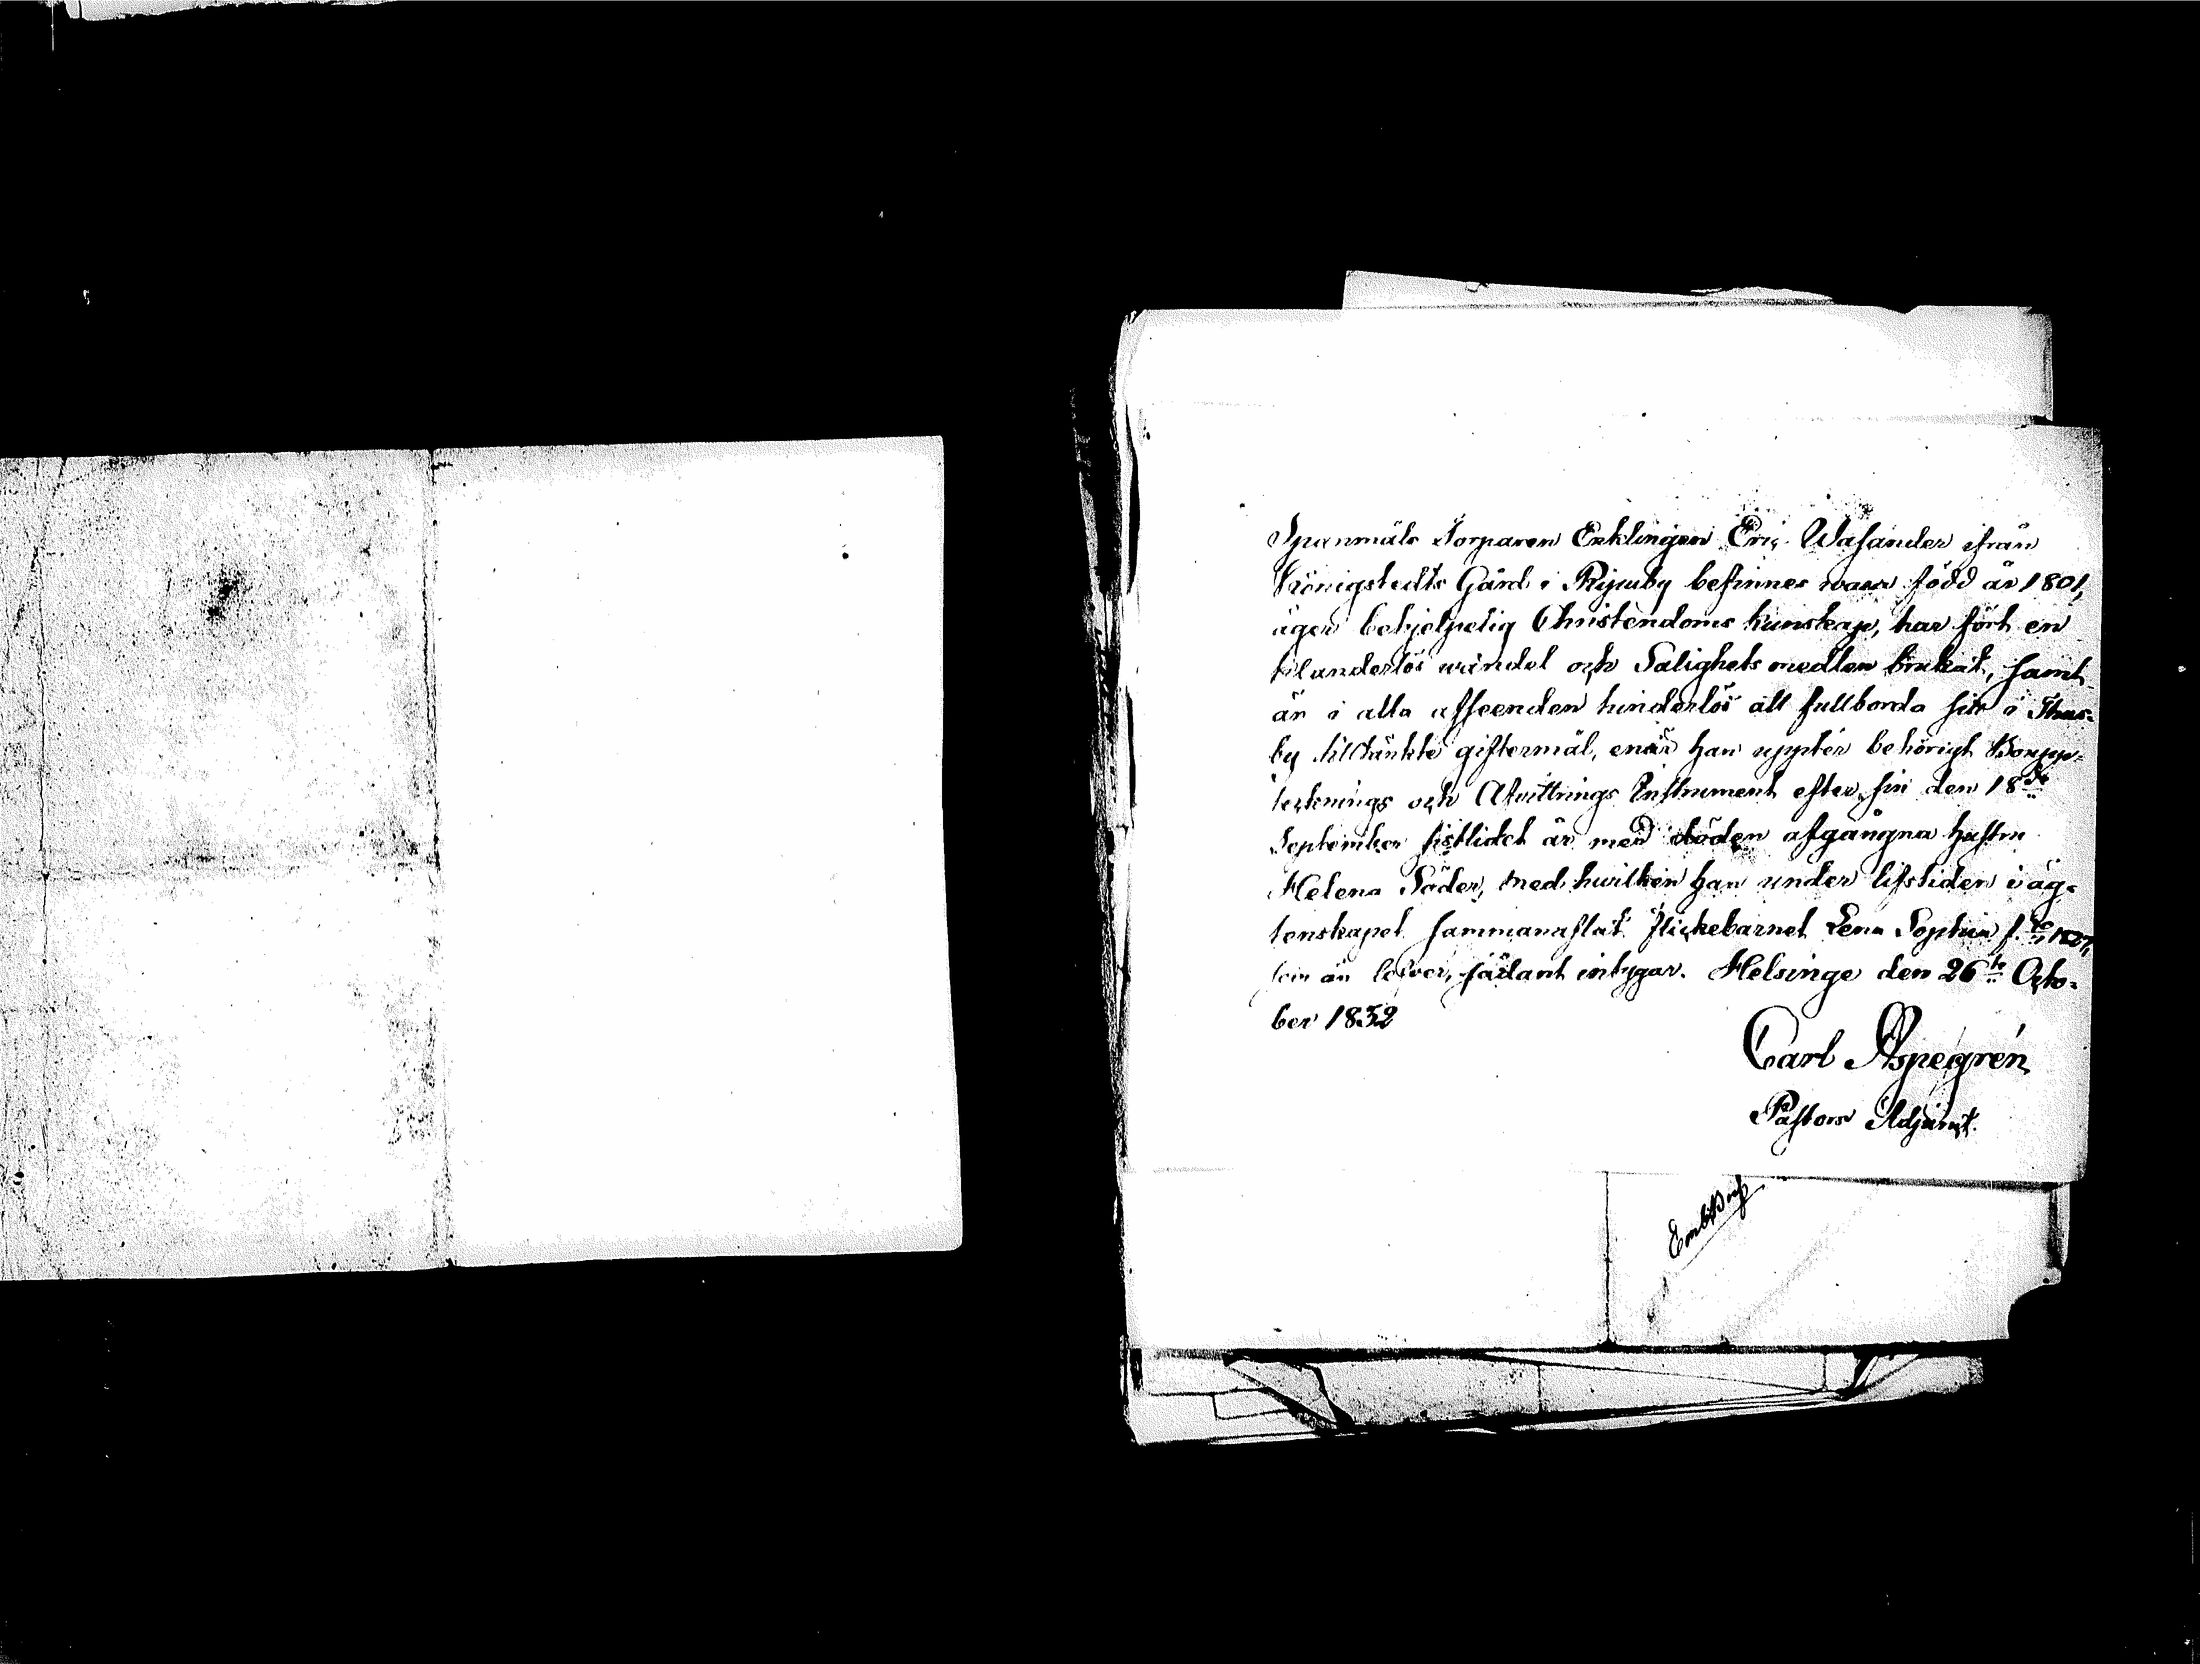 Spanmåls Torparen Enklingen Eric Wasander ifrån
Königstedts Gård i Rijpuby befinnes wara född år 1801,
äger behjelpelig Christendoms kunskap, har fört en
klanderlös wandel och Salighets medlen brukat, samt
är i alla afseenden hinderlös att fullborda sitt i Thus-
by tilltänkte giftermål, enär han uppter behörigt Bouppp-
tecknings och Afwittrings Instrument efter sin den 18de
September sistlidet år med döden afgångna hustru
Helena Söder, med hwilken han under lifstiden i äg-
tenskapet sammanaflat flickebarnet Lena Sophia f.
som än lefver, sådant intygar. Helsinge den 26te Octo-
ber 1832
Carl Aspegrén
Pastors Adjunct.